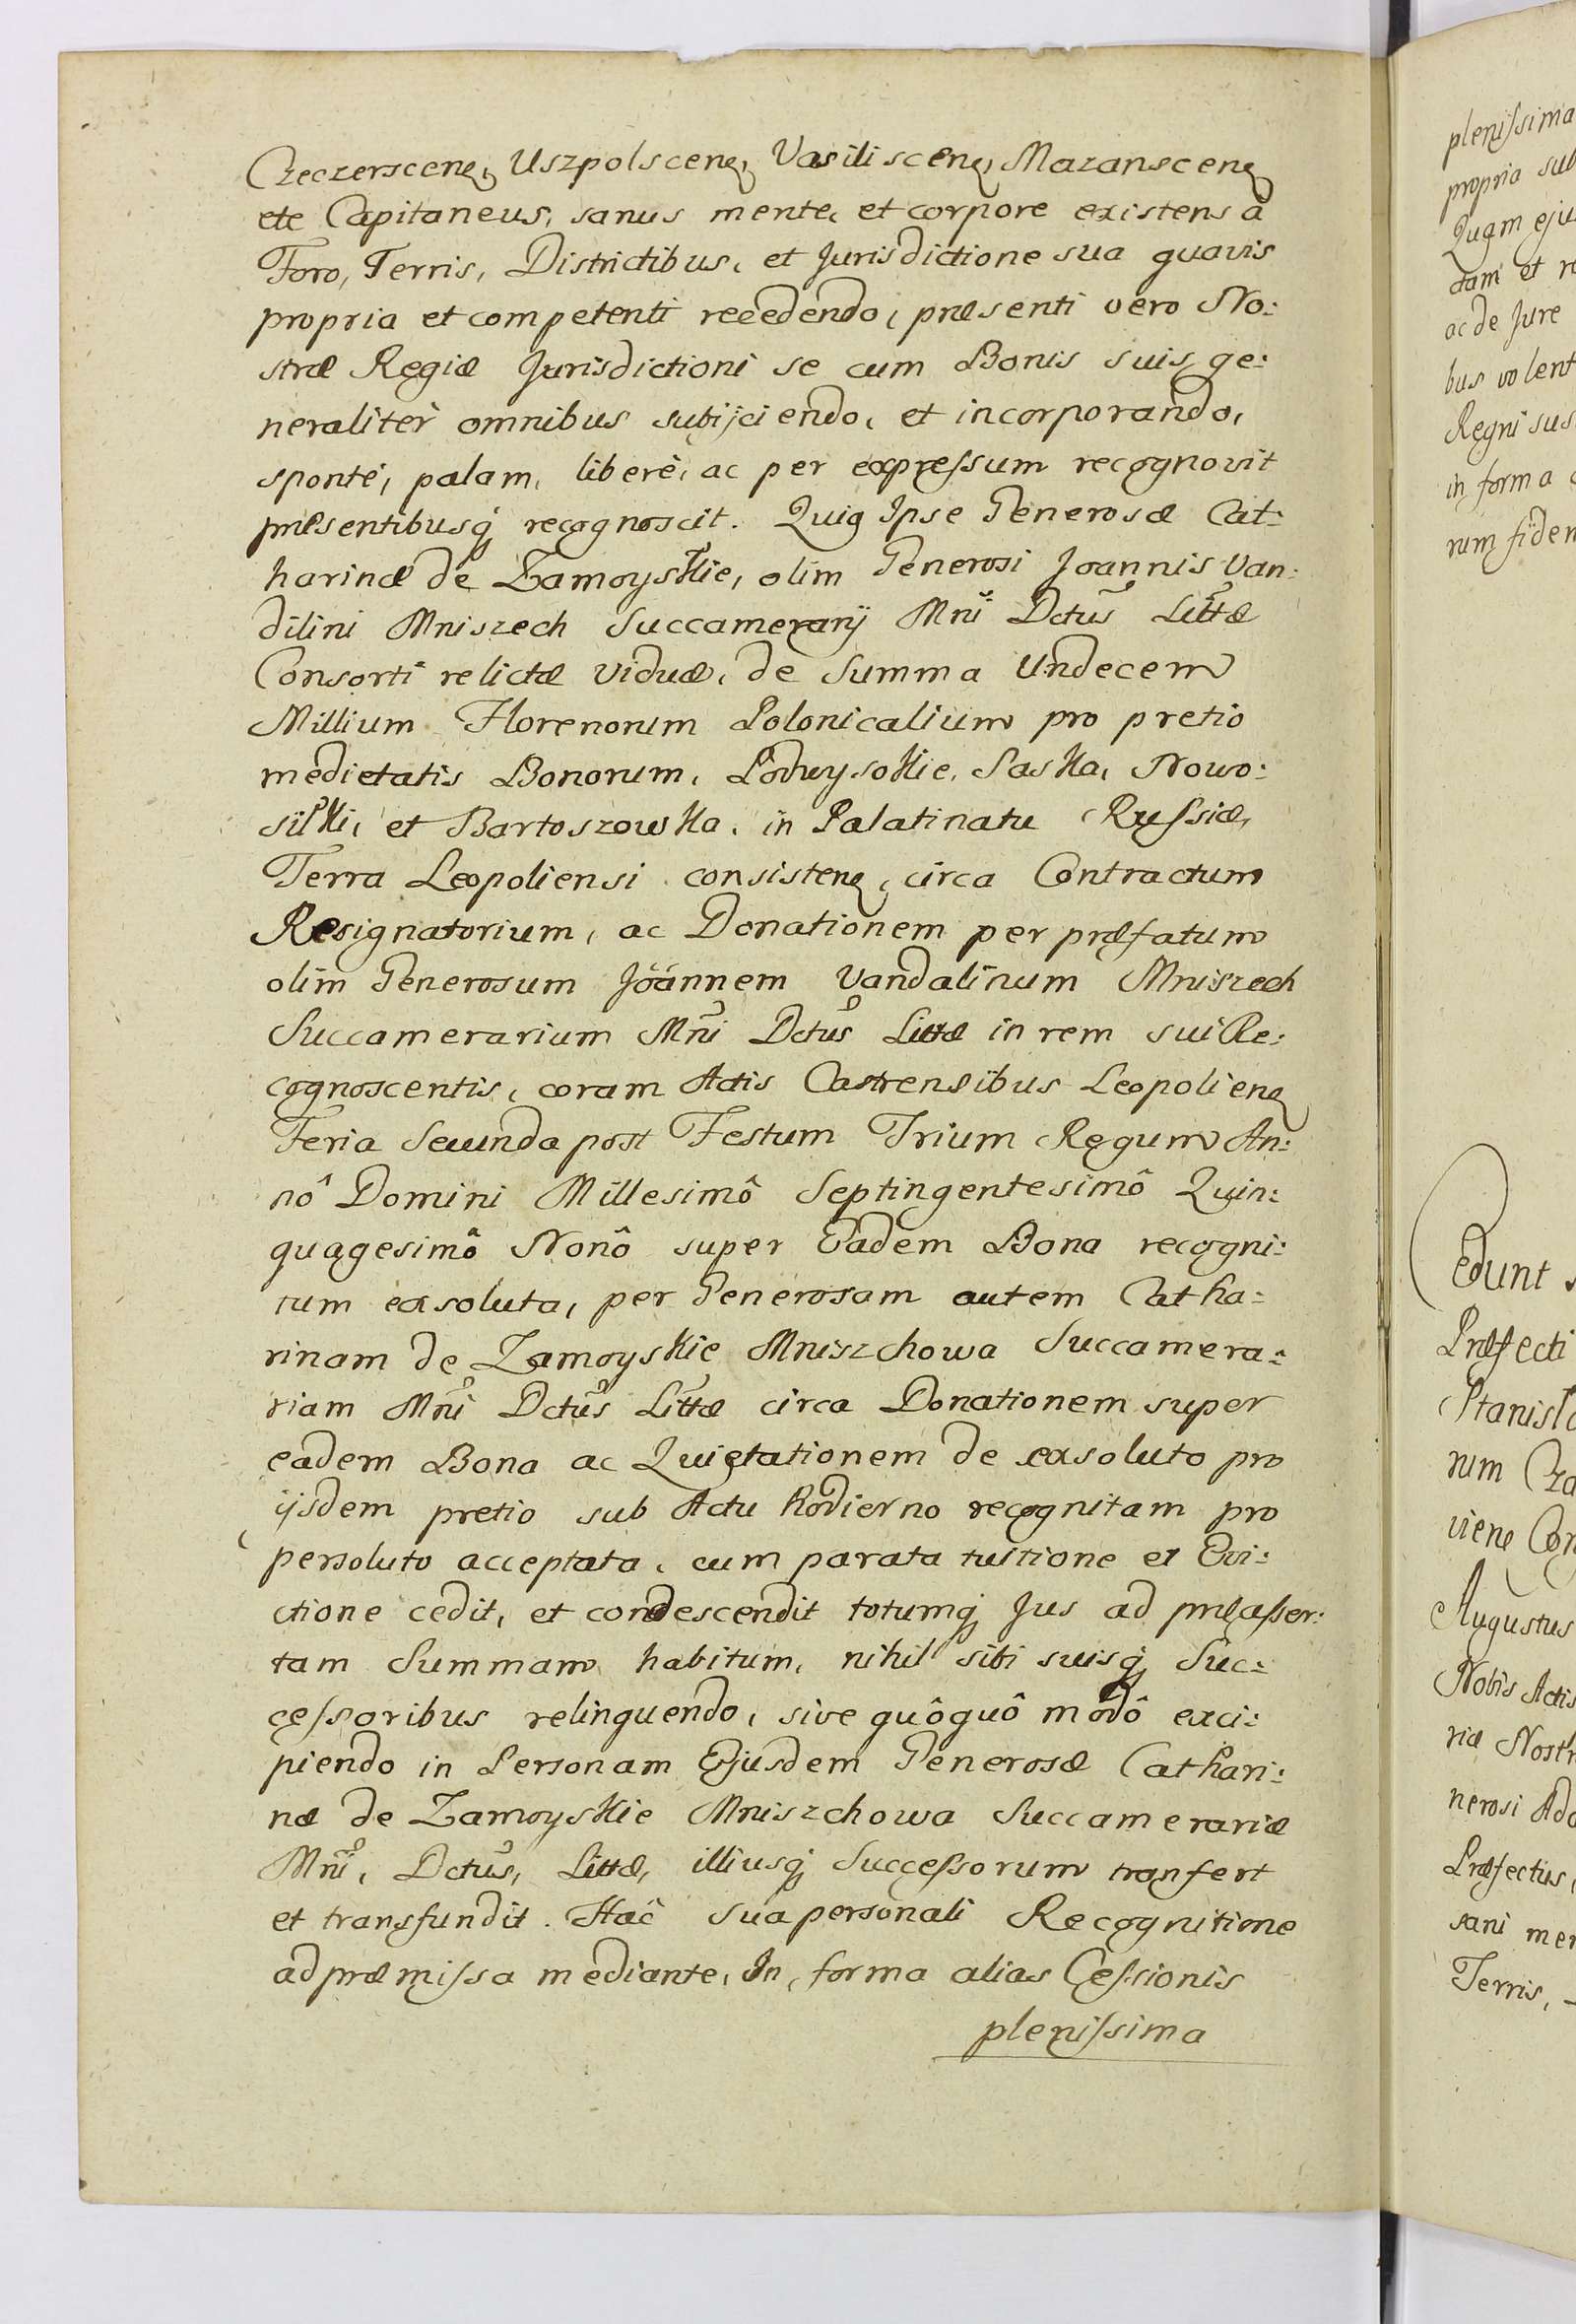 Czeczerscenꝫ, Uszpolscenꝫ, Vasiliscenꝫ, Mazanscenꝫ
etc Capitaneus, sanus mente, et corpore existens à
Foro, Terris, Districtibus, et Jurisdictione sua quavis
propria et competenti recedendo, præsenti vero No:
stræ Regiæ Jurisdictioni se cum Bonis suis ge:
neralitèr omnibus subijciendo, et incorporando,
spontè, palam, liberè, ac per expreſsum recognovit
præsentibusq́ recognoscit. Quia Ipse Generosæ Cat:
harinæ de Zamoyskie, olim Generosi Joannis Van:
dilini Mniszech Succamerarij Mni Dctus Littæ
Consorti relictæ viduæ, de Summa Undecem
Millium Florenorum Polonicalium pro pretio
medietatis Bonorum, Podwysokie, Saska, Nowo:
silki, et Bartoszowka, in Palatinatu Ruſsiæ,
Terra Leopoliensi consistenꝫ, circa Contractum
Resignatorium, ac Donationem per præfatum
olim Generosum Joannem Vandalinum Mniszech
Succamerarium Mni Dctus Littæ in rem sui Re:
cognoscentis, coram Actis Castrensibus Leopolienꝫ
Feria Secunda post Festum Trium Regum An:
nô Domini Millesimô Septingentesimô Quin:
quagesimô Nonô super Eadem Bona recogni:
tum exsoluta, per Generosam autem Catha:
rinam de Zamoyskie Mniszchowa Succamera:
riam Mni Dctus Littæ circa Donationem super
eadem Bona ac Quietationem de exsoluto pro
ijsdem pretio sub Actu hodierno recognitam pro
persoluto acceptata, cum parata tuitione et Evi:
ctione cedit, et condescendit totumq́ Jus ad præaſser:
tam Summam habitum, nihil sibi suisq́ Suc:
ceſsoribus relinquendo, sive quôquô modô exci:
piendo in Personam Ejusdem Generosæ Cathari:
næ de Zamoyskie Mniszchowa Succamerariæ
Mni, Dctus, Littæ, illiusq́ Succeſsorum transfert
et transfundit. Hac sua personali Recognitione
ad præmiſsa mediante, In forma alias Ceſsionis
pleniſsima
pleniſsima
propria sub
Quam eju
dam et r
ac de Jure
bus volent
Regni sus
in forma
rum fidem
Cedunt
Præfecti
Stanisla
rum Cza
vienꝫ Con
Augustus
Nobis Actis
riæ Nostr
nerosi Ada
Præfectus,
sani men
Terris,